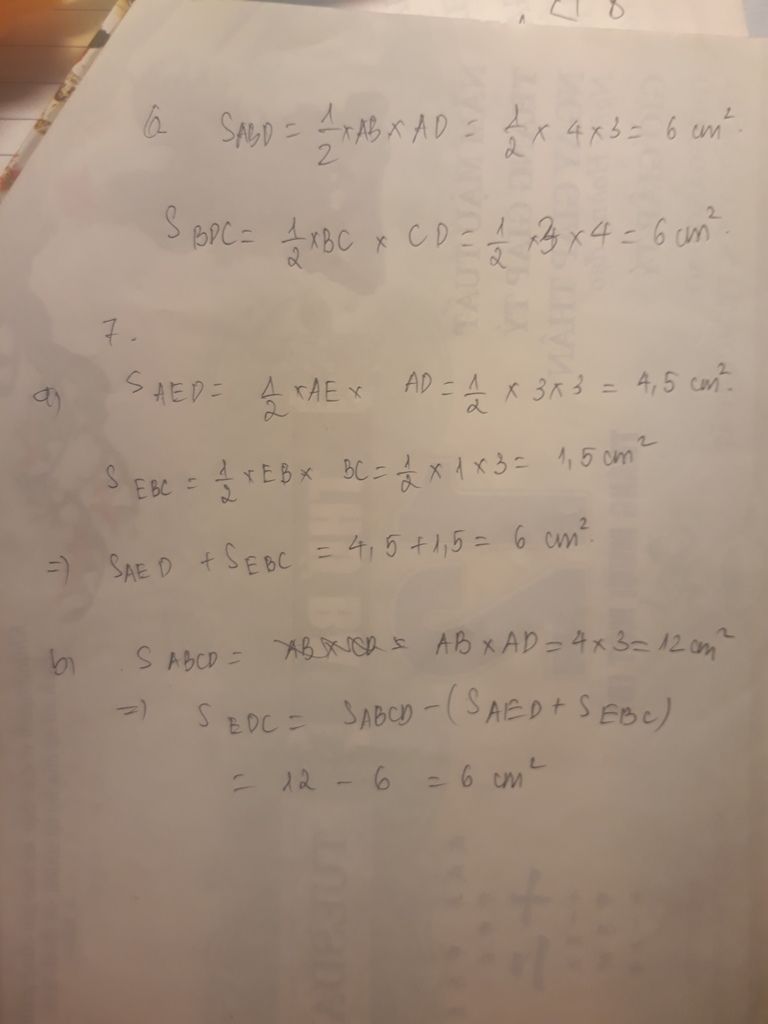 6 S ABD = 1/2 × AB × AD = 1/2 × 4 × 3 = 6 cm².
S BDC = 1/2 × BC × CD = 1/2 × 3 × 4 = 6 cm².
7.
a) S AED = 1/2 × AE × AD = 1/2 × 3 × 3 = 4,5 cm².
S EBC = 1/2 × EB × BC = 1/2 × 1 × 3 = 1,5 cm²
=) S AED + S EBC = 4,5 + 1,5 = 6 cm².
b) S ABCD = AB × AD = 4 × 3 = 12 cm²
=) S EDC = S ABCD - (S AED + S EBC)
= 12 - 6 = 6 cm²